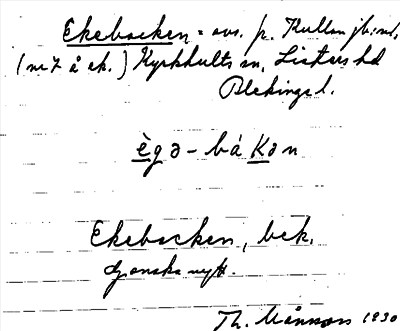 Ekebacken = avs. p. Kullan jb:nd,
(nr 7 å ek.) Kyrkhults sn, Listers hd
Blekinge l.
ègə - bá kən
Ekebacken, bek.
Ganska nytt.
Th. Månsson 1930